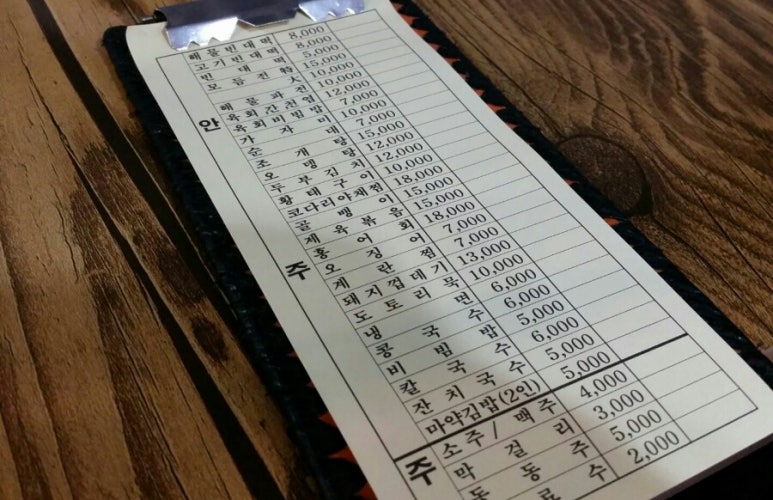 해물빈대떡 8,000
고기빈대떡 8,000
빈대떡 5,000
모듬전 大 15,000
10,000
해물파전 10,000
육회간천엽 12,000
육회비빔밥 7,000
안
가자미 10,000
순대 7,000
조개탕 15,000
오뎅탕 12,000
두부김치 12,000
황태구이 10,000
코다리야채찜 18,000
골뱅이 15,000
제육볶음 15,000
홍어회 18,000
주
오징어 7,000
계란찜 7,000
돼지껍데기 13,000
도토리묵 10,000
냉면 6,000
콩국수 6,000
비빔밥 5,000
칼국수 6,000
잔치국수 5,000
마약김밥(2인) 5,000
주
소주/맥주 4,000
막걸리 3,000
동동주 5,000
료수 2,000